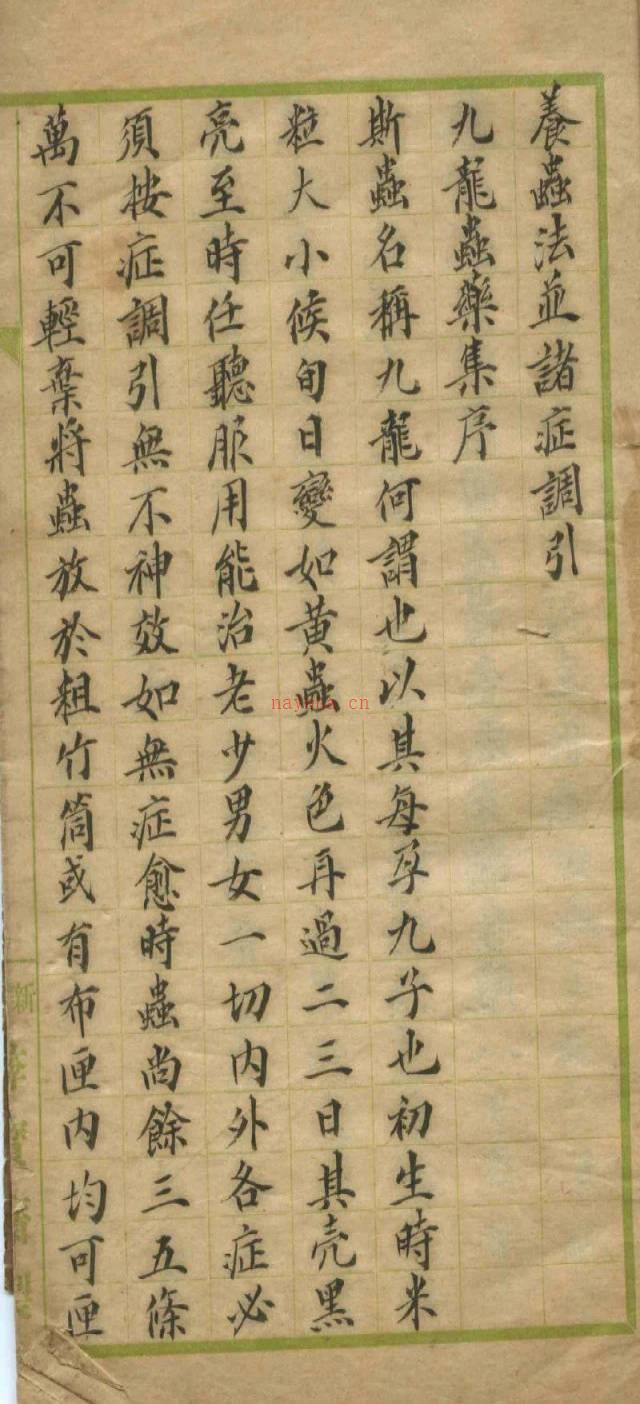 養蟲法並諸症調引
九龍蟲藥集序
斯蟲名稱九龍何謂也以其每孕九子也初生時米
粒大小候旬日變如黃蟲火色再過二三日其壳黑
亮至時任聽服用能治老少男女一切内外各症必
須按症調引無不神效如無症愈時蟲尚餘三五條
萬不可輕棄將蟲放於粗竹筒或有布匣内均可匣